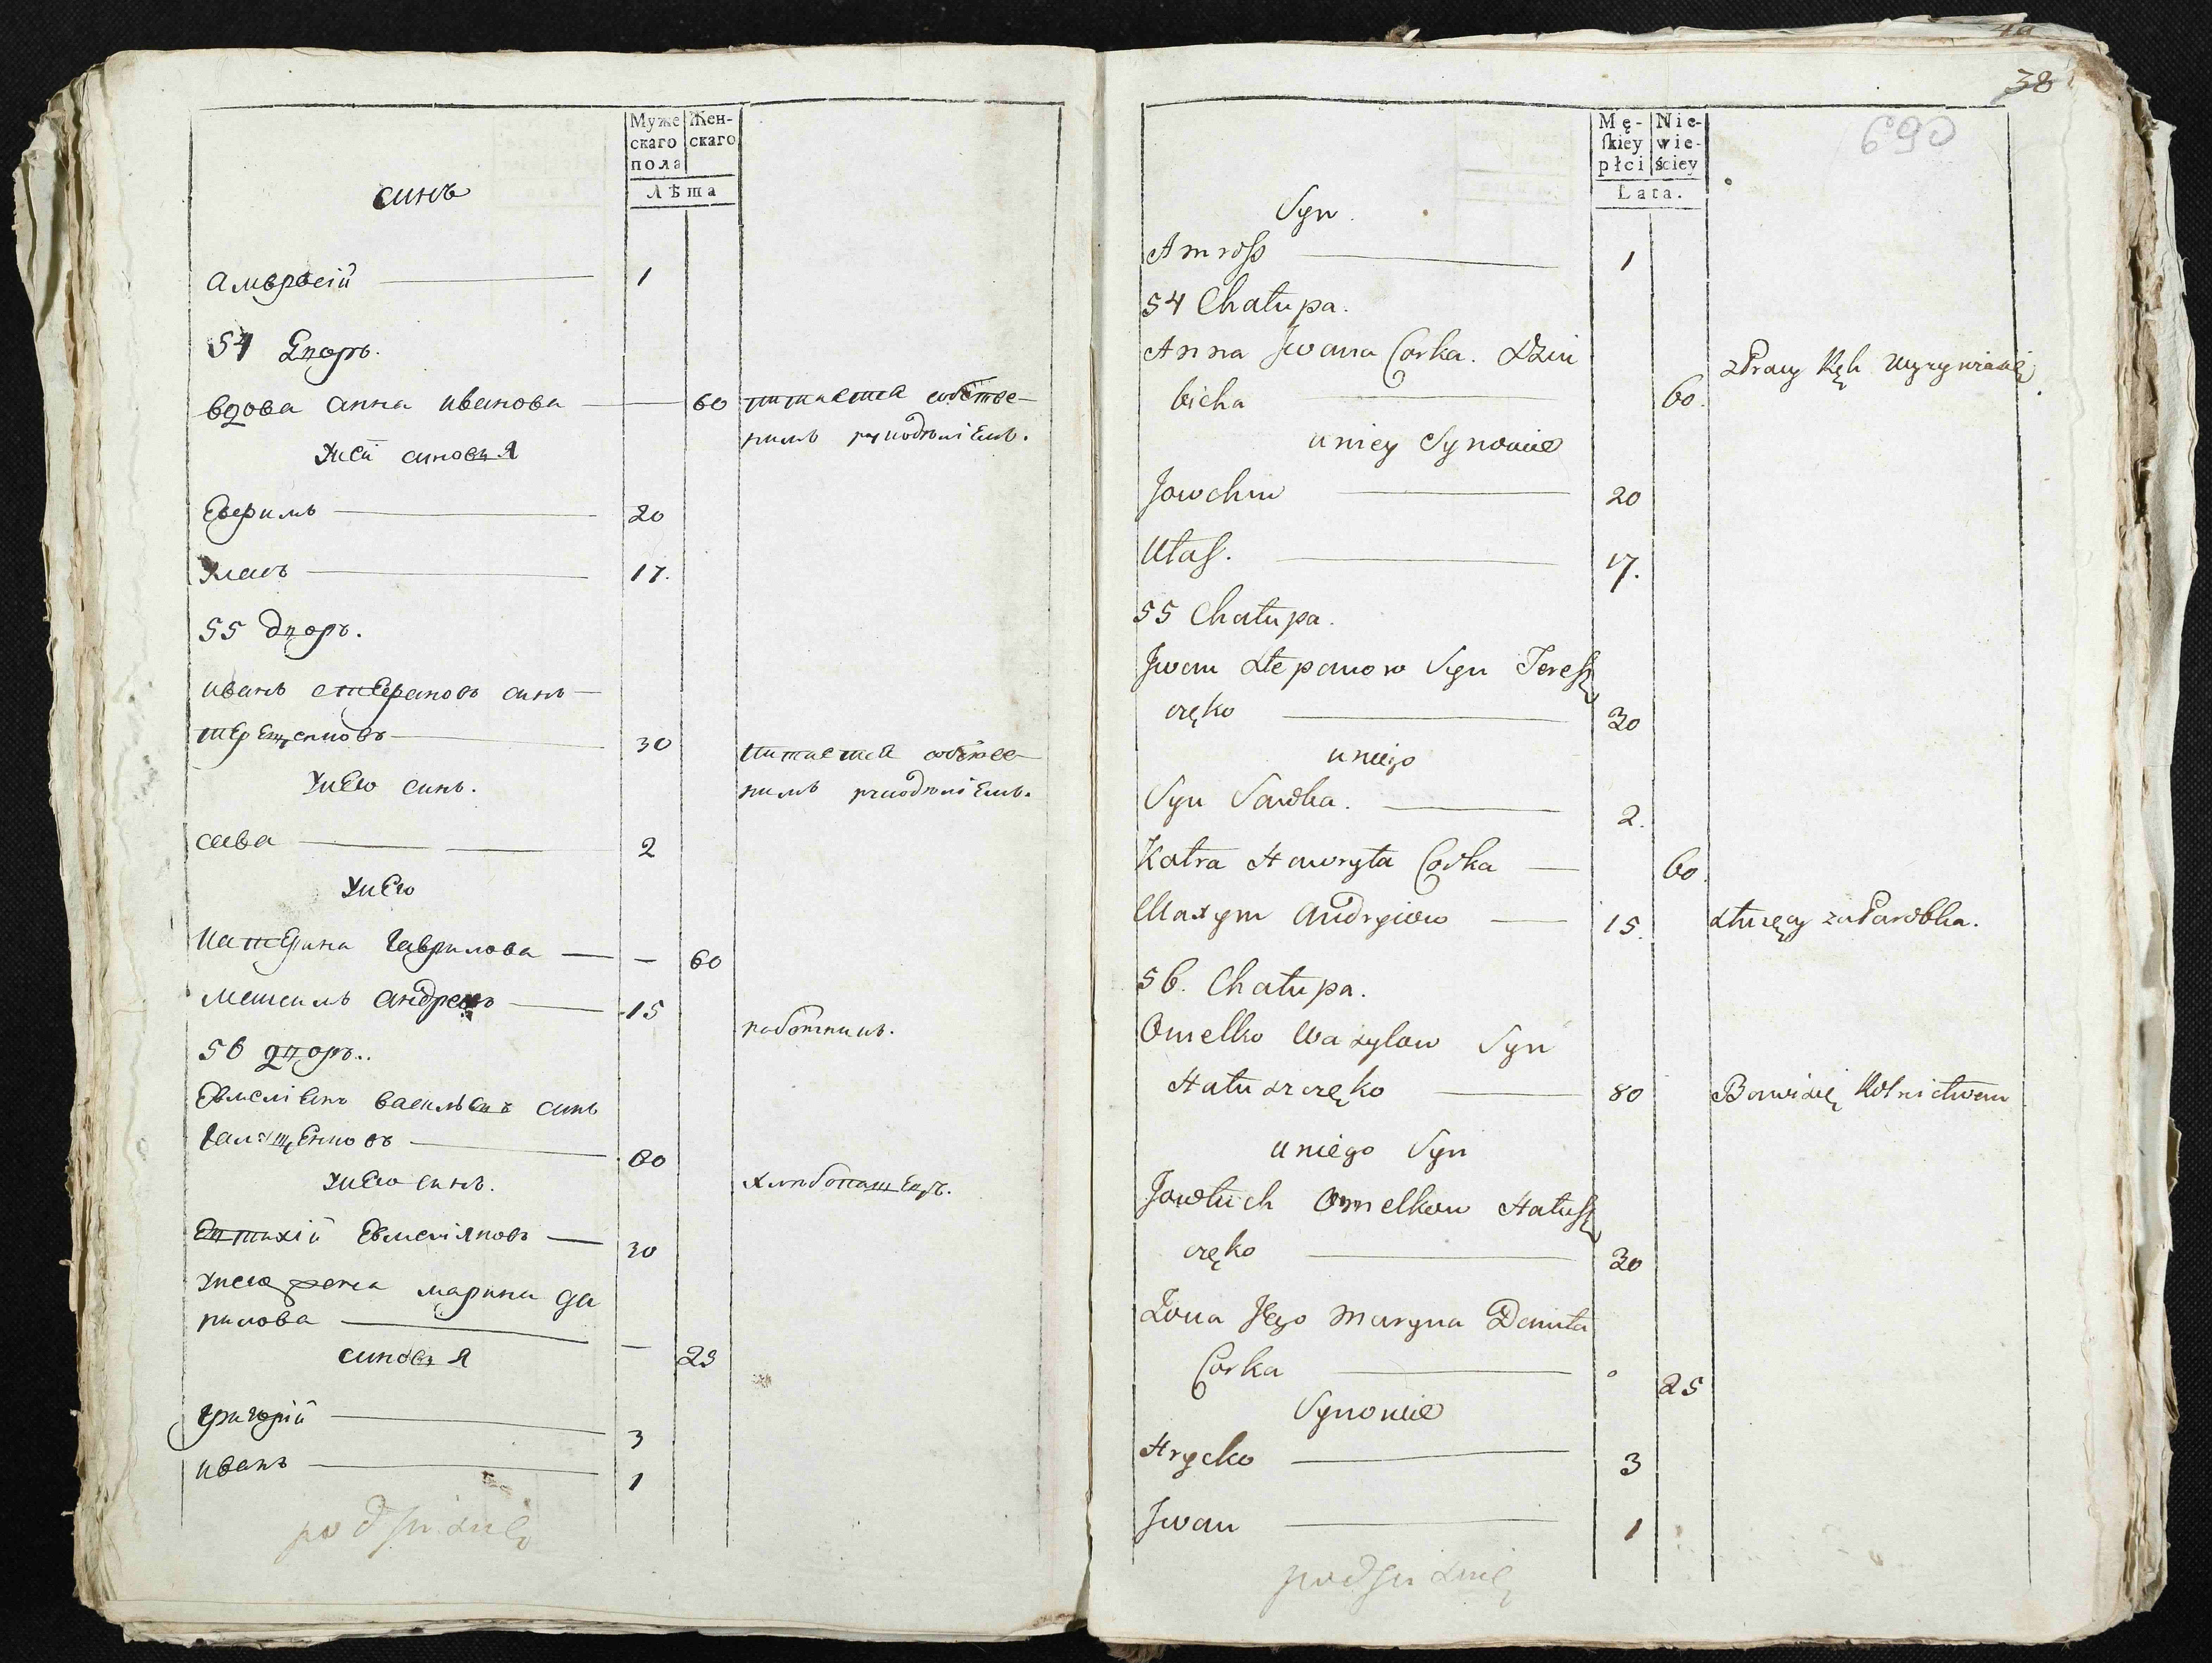 Муже
скаго
пола
Жен-
скаго
Лѣта
синъ
амвросій 1
54 дворъ.
вдова анна иванова 60 питается собстве-
нимъ рукодѣліемъ.
унеи синовья
Ефимъ 20
уласъ 17.
55 дворъ.
иванъ стефановъ синъ
терещенковъ 30 питается собстве-
нимъ рукодѣліемъ.
унего синъ.
сава 2
унего
катерина гаврилова — 60
максимъ андреевъ 15 работникъ.
56 дворъ..
Емеліянъ васильевъ синъ
галущенковъ 80
унего синъ. хлѣбопашецъ.
Евтихій Емеліяновъ 30
унего жена марина да
нилова — 25
синовья
григорій 3
иванъ 1
38
690
Mę-
skiey
płci
Nie-
wie-
ściey
Lata.
Syn.
Amross 1
54 Chałupa.
Anna Jwana Corka. Dziu
bicha 60. z Pracy Rąk
uniey Synowie
Jowchim 20
Ułas. 17.
55 Chałupa.
Jwan Stepanow Syn Teresz
częko 30
uniego
Syn Sawka. 2.
Katra Hawryła Corka 60.
Maxym Andryiow 15. Służący za Parobka.
56. Chałupa.
Omelko Wasylow Syn
Hałuszczęko 80 Bawi się Rolnictwem
uniego Syn
Jowtuch Omelkow Hałusz
częko 30
Zona Jego Maryna Daniła
Corka 25
Synowie
Hrycko 3
Jwan 1